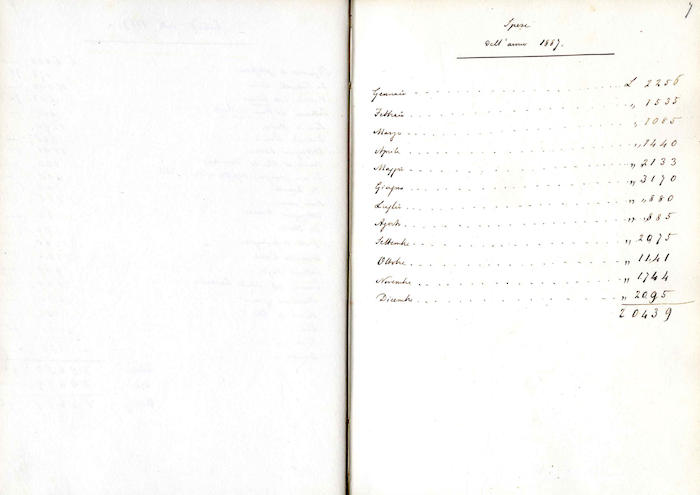 7
Spese
dell'anno 1887.
Gennaio . . . . . . . . . . . . . . . . . . £ 2256
Febbraio . . . . . . . . . . . . . . . . . . „ 1535
Marzo . . . . . . . . . . . . . . . . . . „ 1085
Aprile . . . . . . . . . . . . . . . . . . „ 1440
Maggio . . . . . . . . . . . . . . . . . . „ 2133
Giugno . . . . . . . . . . . . . . . . . . „ 3170
Luglio . . . . . . . . . . . . . . . . . . „ „880
Agosto . . . . . . . . . . . . . . . . . . „ „885
Settembre . . . . . . . . . . . . . . . . . . „ 2075
Ottobre . . . . . . . . . . . . . . . . . . „ 1141
Novembre . . . . . . . . . . . . . . . . . . „ 1744
Dicembre . . . . . . . . . . . . . . . . . . „ 2095
20439